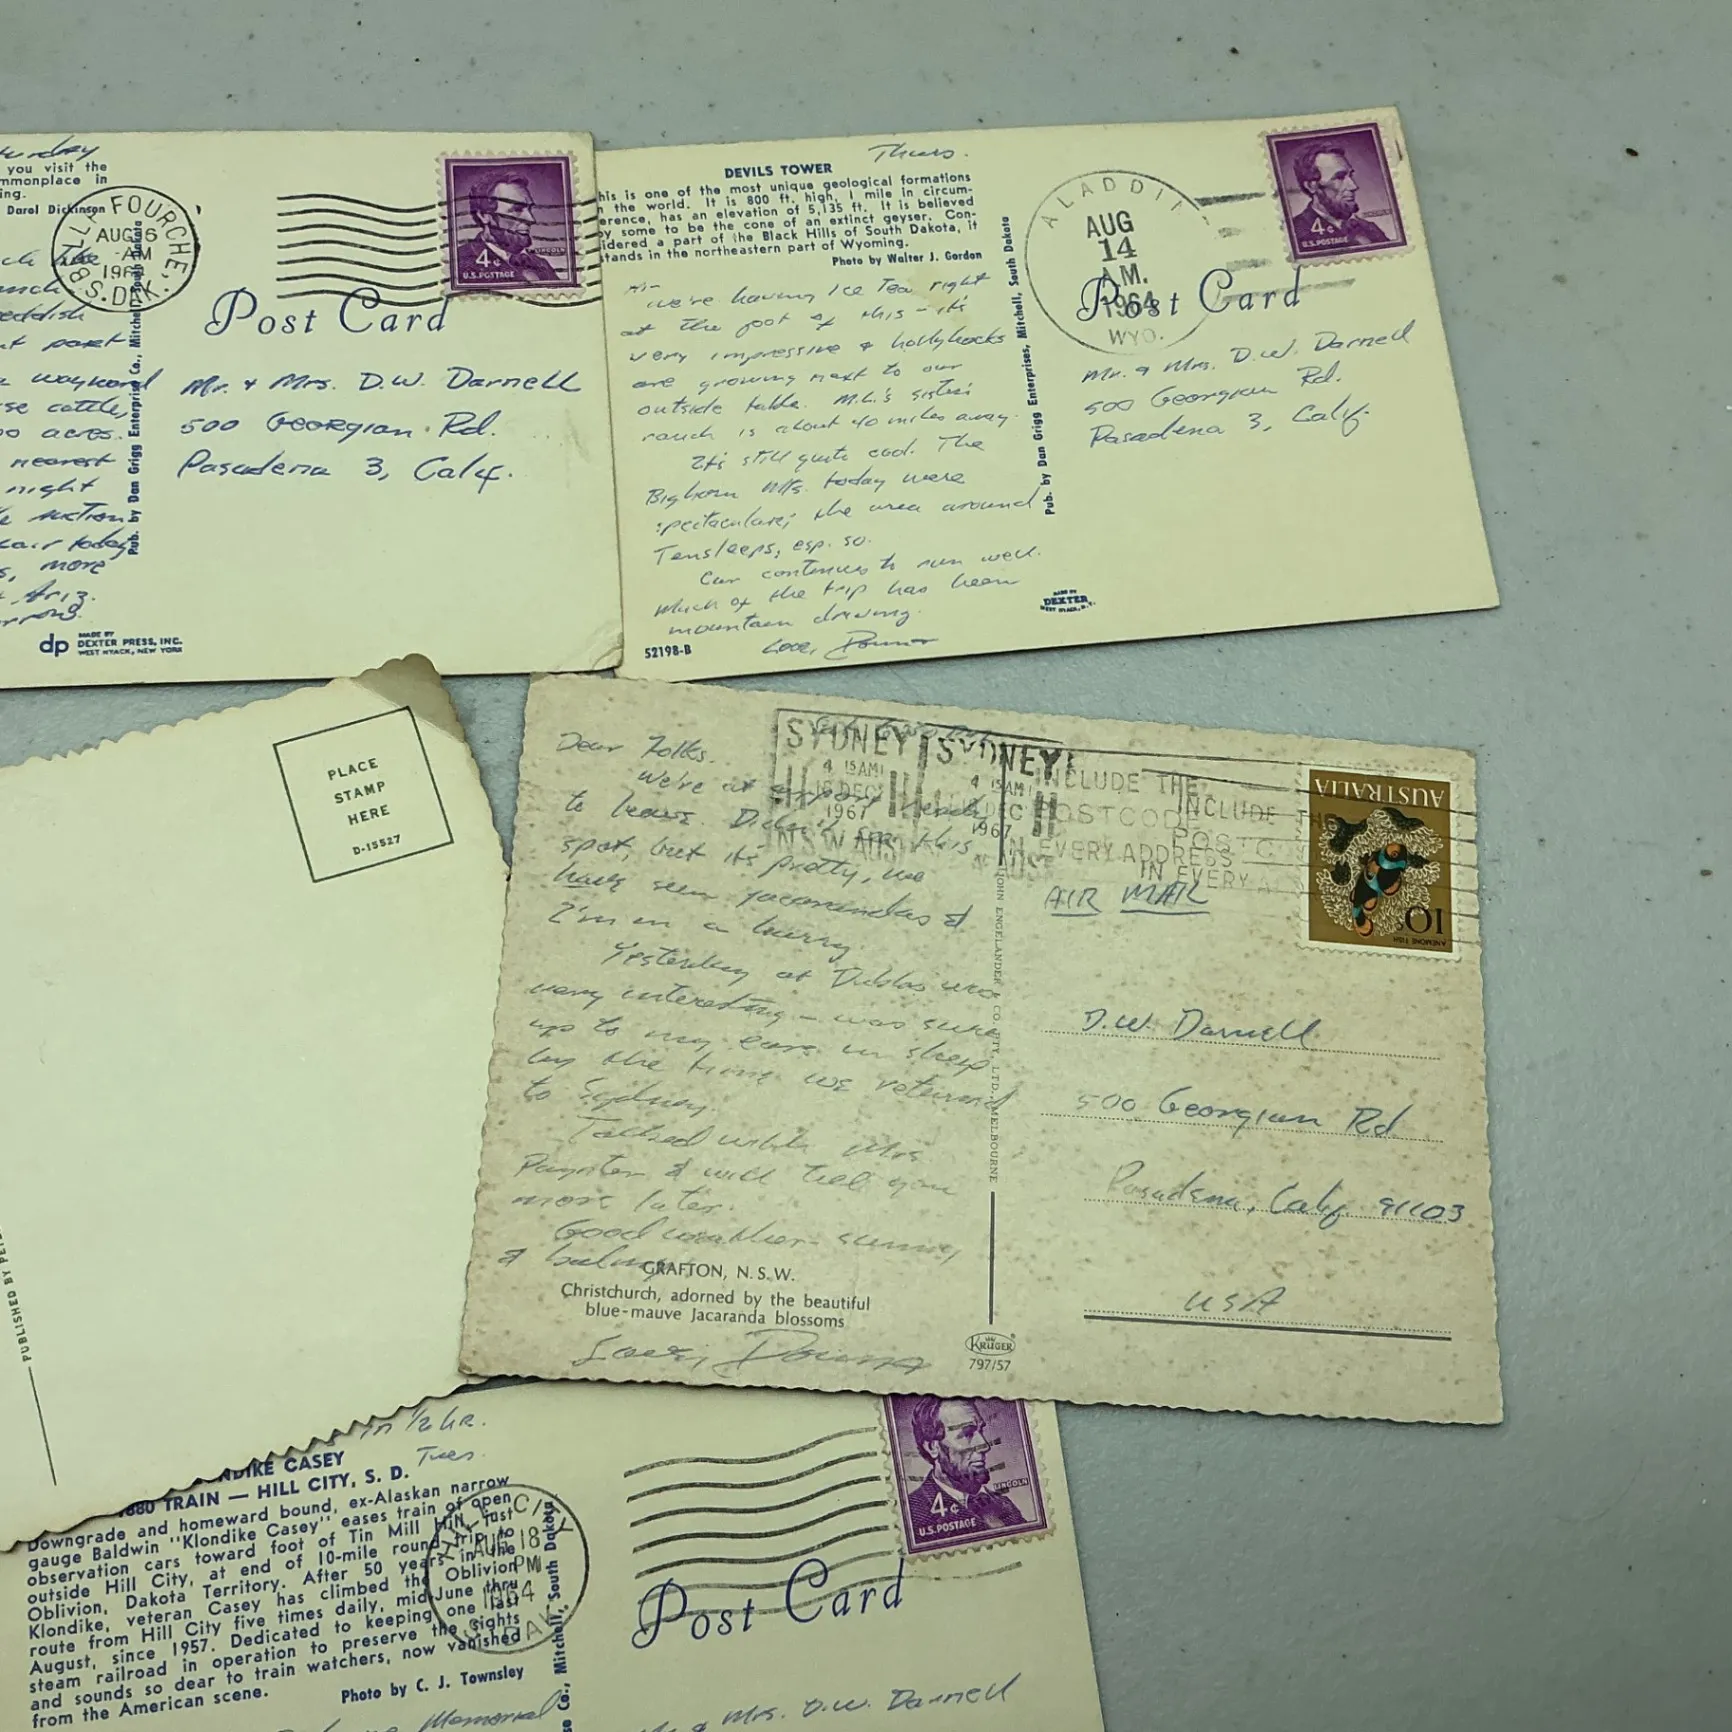 you visit the
mmonplace in
ing.
Darol Dickinson
FOURCHE,
AUG 16
-AM
1964
S. DAK.
LINCOLN
4¢
U.S. POSTAGE
Post Card
Mr. & Mrs. D.W. Darnell
500 Georgian Rd.
Pasadena 3, Calif.
wayward
se cattle,
00 acres.
nearest
night
auction
fair today,
s, more
Ariz.
Pub. by Dan Grigg Enterprise Co., Mitchell, South Dakota
dp MADE BY
DEXTER PRESS, INC.
WEST NYACK, NEW YORK
Thurs.
DEVILS TOWER
his is one of the most unique geological formations
the world. It is 800 ft. high, 1 mile in circum-
erence, has an elevation of 5,135 ft. It is believed
by some to be the cone of an extinct geyser. Con-
idered a part of the Black Hills of South Dakota, it
stands in the northeastern part of Wyoming.
Photo by Walter J. Gordon
Hi-
we're having Ice Tea right
at the foot of this - it's
very impressive & hollyhocks
are growing next to our
outside table. M.L.'s sister's
ranch is about 40 miles away.
It's still quite cool. The
Bighorn Mts. today were
spectacular; the area around
Tensleeps, esp. so.
Car continues to run well.
Much of the trip has been
mountain driving.
Love, Donna
52198-B
Pub. by Dan Grigg Enterprises, Mitchell, South Dakota
ALADDIN
AUG
14
A.M.
1964
WYO.
4¢
U.S. POSTAGE
Post Card
Mr. & Mrs. D.W. Darnell
500 Georgian Rd.
Pasadena 3, Calif.
MADE BY
DEXTER
WEST NYACK, N.Y.
PLACE
STAMP
HERE
D-15527
PUBLISHED BY
Dear Folks.
We're at airport ready
to leave. Dick this
spot, but it's pretty, we
have seen jacarandas &
I'm in a hurry.
Yesterday at Dubbo was
very interesting - was sure
up to my ears in sheep
by the time we returned
to Sydney.
Talked with Mrs.
Paynter & will tell you
more later.
Good weather - sunny
& balmy
GRAFTON, N.S.W.
Christchurch, adorned by the beautiful
blue-mauve Jacaranda blossoms
Love, Donna
SYDNEY
4 15 AM
DEC
1967
N.S.W. AUST
SYDNEY
4 15 AM
DEC
1967
AUST
INCLUDE THE
POSTCODE
IN EVERY ADDRESS
INCLUDE THE
POSTC
IN EVERY A
AUSTRALIA
10
ANEMONE FISH
JOHN ENGELANDER CO. PTY. LTD., MELBOURNE
AIR MAIL
D.W. Darnell
500 Georgian Rd
Pasadena, Calif. 91103
USA
KRUGER
797/57
in 1/2 hr.
Tues.
NDIKE CASEY
1880 TRAIN — HILL CITY, S. D.
Downgrade and homeward bound, ex-Alaskan narrow
gauge Baldwin "Klondike Casey" eases train of open
observation cars toward foot of Tin Mill Hill, just
outside Hill City, at end of 10-mile round trip to
Oblivion, Dakota Territory. After 50 years in the
Klondike, veteran Casey has climbed the Oblivion
route from Hill City five times daily, mid-June thru
August, since 1957. Dedicated to keeping one last
steam railroad in operation to preserve the sights
and sounds so dear to train watchers, now vanished
from the American scene.
Photo by C. J. Townsley
Memorial
se Co., Mitchell, South Dakota
HILL CITY
AUG 18
PM
1964
S. DAK.
LINCOLN
4¢
U.S. POSTAGE
Post Card
& Mrs. D.W. Darnell